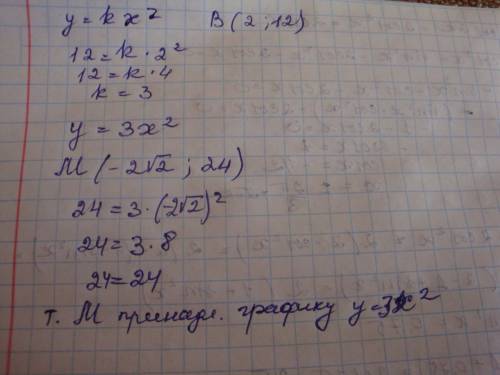 y = kx² B (2 ; 12)
12 = k · 2²
12 = k · 4
k = 3
y = 3x²
М (-2√2 ; 24)
24 = 3 · (-2√2)²
24 = 3 · 8
24 = 24
т. М принадл. графику y = 3x²